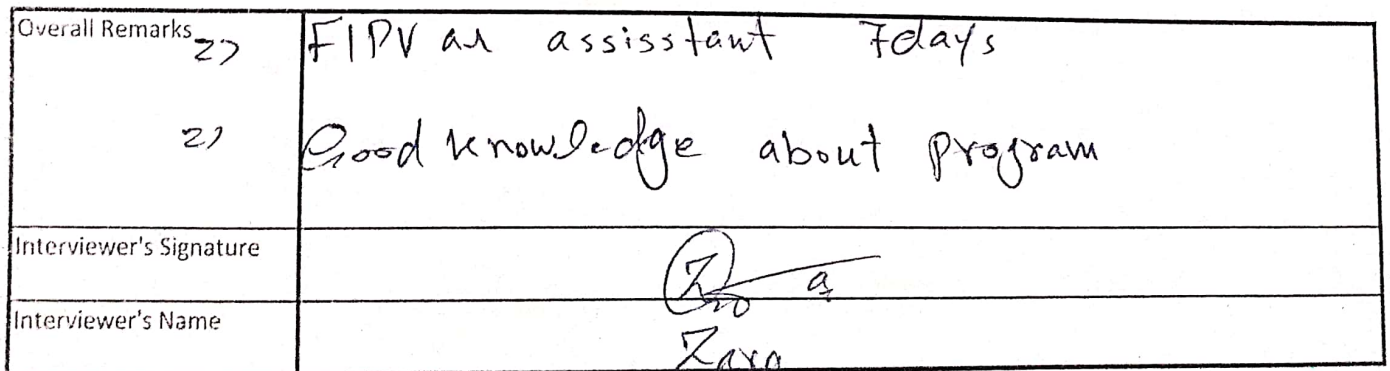 Overall Remarks 2> FIPV as assisstant 7days
2> Good knowledge about program
Interviewer's Signature
Interviewer's Name Zara